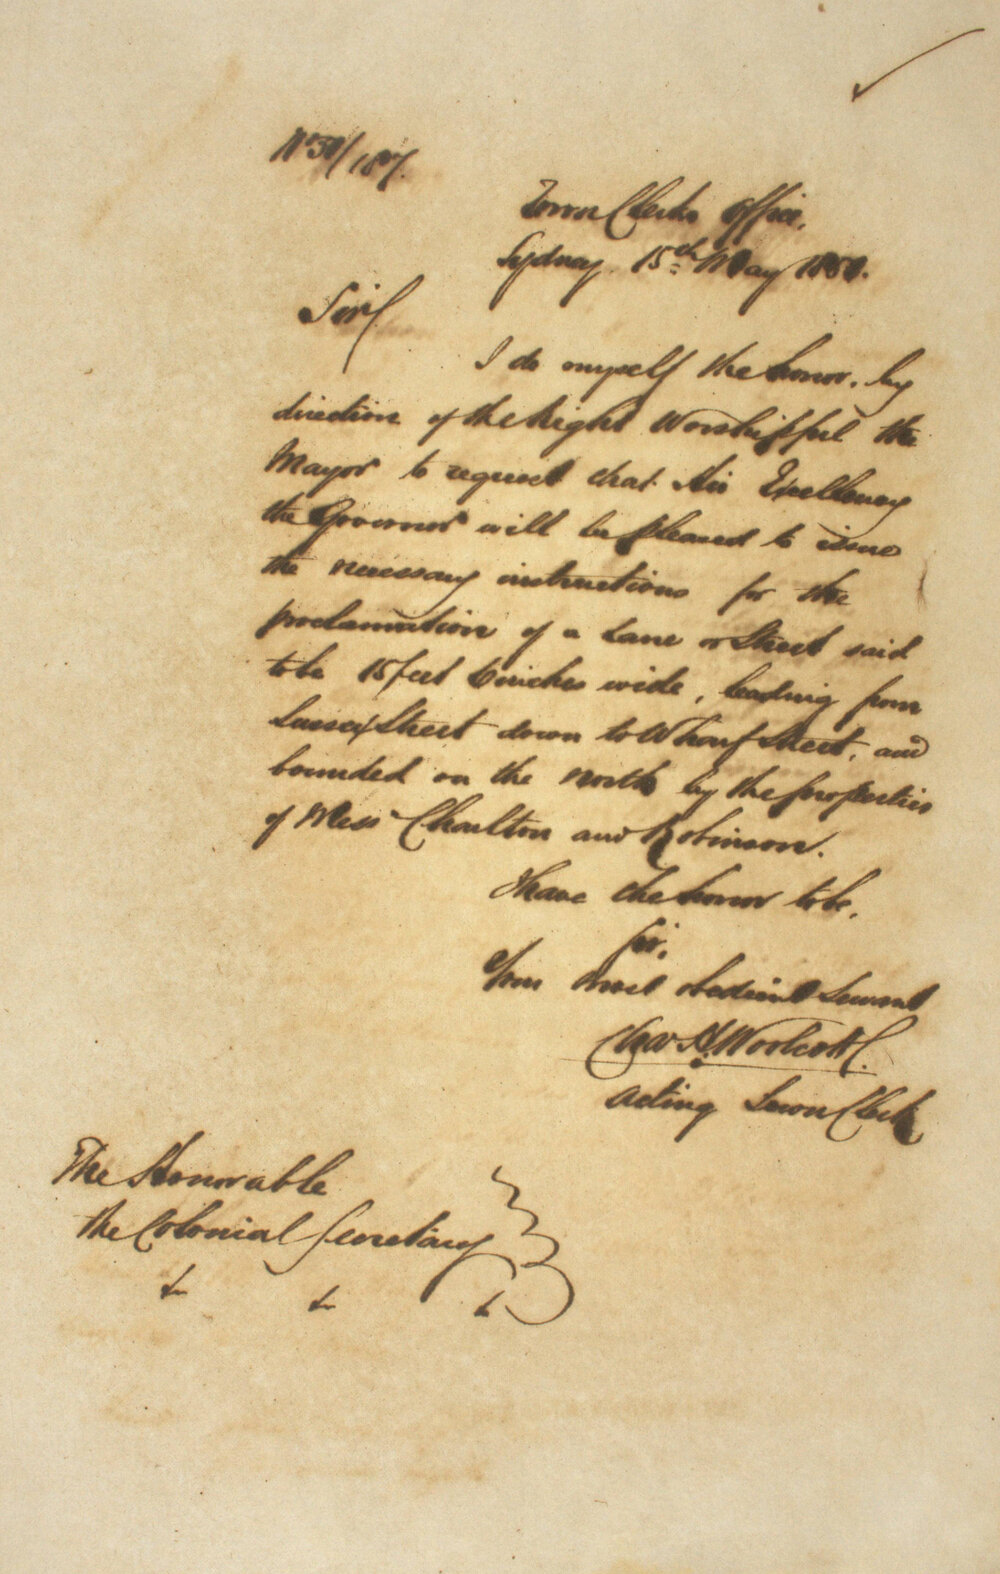 Town Clerks Office,
Sydney 15th May 1850.
Sir
I do myself the honor, by
direction of the Right Worshipful the
Mayor to request that His Excellency
the Governor will be pleased to issue
the necessary instructions for the
proclamation of a Lane or Street said
to be 15 feet 6 inches wide, leading from
Sussex Street down to Wharf Street, and
bounded on the north by the properties
of Mess Charlton and Robinson.
I have the honor to be,
Sir,
Your most obedient Servant
Chas H. Woolcott.
Acting Town Clerk
The Honorable
the Colonial Secretary
&c &c &c